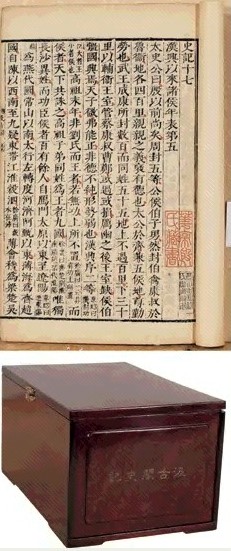 史記十七
漢興以來諸侯年表第五
太史公曰殷以前尚矣周封五等公侯伯子男然封伯禽康叔於
魯衛地各四百里親親之義褒有德也太公於齊兼五侯地尊勤
勞也武王成康所封數百而同姓五十五地上不過百里下三十
里以輔衛王室管蔡康叔曹鄭或過或損厲幽之後王室缺侯伯
彊國興焉天子微弗能正非德不純形勢弱也漢興序二等
高祖末年非劉氏而王者若無功上所不置
侯者天下共誅之高祖子弟同姓為王者九國 唯獨
長沙異姓而功臣侯者百有餘人自鴈門太原以東至遼陽
為燕代國常山以南太行左轉度河濟阿甄以東薄海為齊趙
國自陳以西南至九疑東帶江淮穀泗 薄會稽為梁楚吳
汲古閣史記